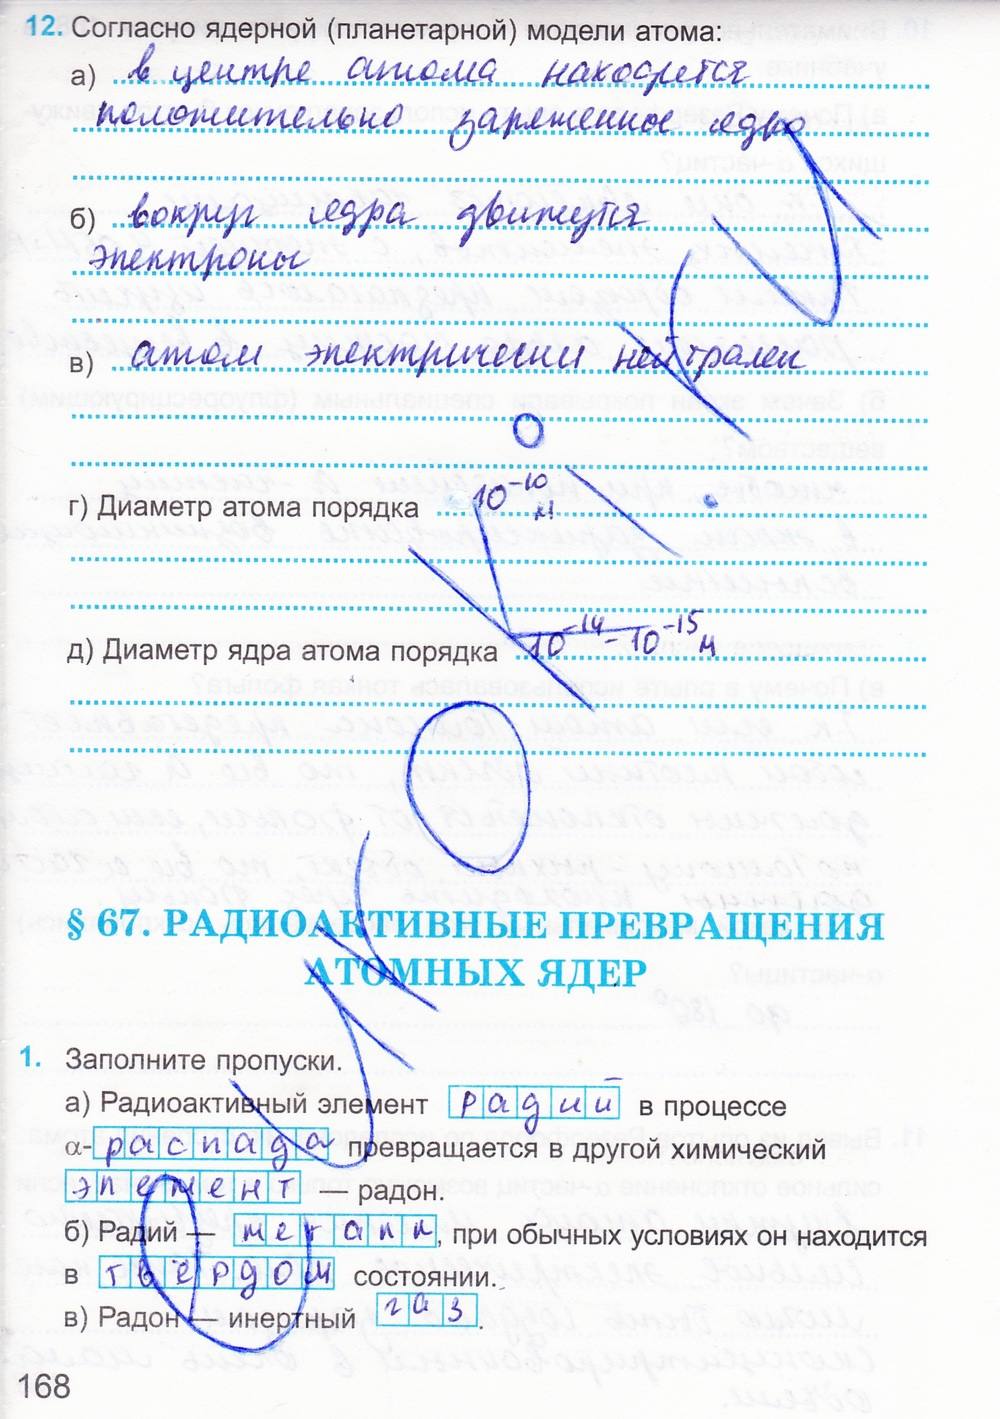 12. Согласно ядерной (планетарной) модели атома:
а) в центре атома находится
положительно заряженное ядро
б) вокруг ядра движутся
электроны
в) атом электрически нейтрален
г) Диаметр атома порядка 10⁻¹⁰ м
д) Диаметр ядра атома порядка 10⁻¹⁴ - 10⁻¹⁵ м
§ 67. РАДИОАКТИВНЫЕ ПРЕВРАЩЕНИЯ
АТОМНЫХ ЯДЕР
1. Заполните пропуски.
а) Радиоактивный элемент радий в процессе
α-распада превращается в другой химический
элемент — радон.
б) Радий — металл, при обычных условиях он находится
в твёрдом состоянии.
в) Радон — инертный газ.
168